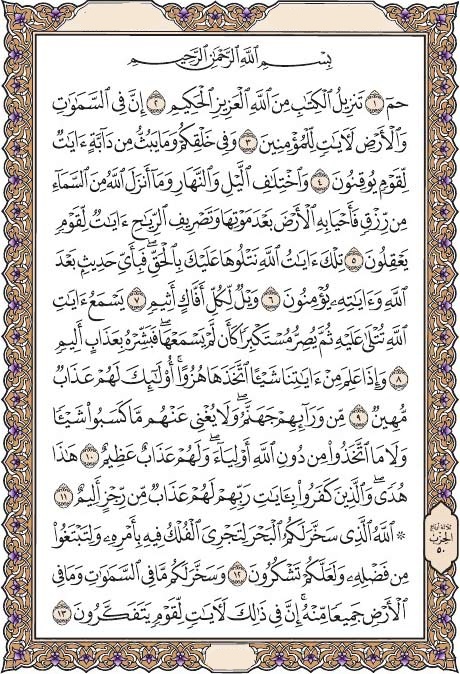 بِسْمِ ٱللَّهِ ٱلرَّحْمَٰنِ ٱلرَّحِيمِ
حمٓ ١ تَنزِيلُ ٱلْكِتَٰبِ مِنَ ٱللَّهِ ٱلْعَزِيزِ ٱلْحَكِيمِ ٢ إِنَّ فِى ٱلسَّمَٰوَٰتِ
وَٱلْأَرْضِ لَءَايَٰتٍ لِّلْمُؤْمِنِينَ ٣ وَفِى خَلْقِكُمْ وَمَا يَبُثُّ مِن دَآبَّةٍ ءَايَٰتٌ
لِّقَوْمٍ يُوقِنُونَ ٤ وَٱخْتِلَٰفِ ٱلَّيْلِ وَٱلنَّهَارِ وَمَآ أَنزَلَ ٱللَّهُ مِنَ ٱلسَّمَآءِ
مِن رِّزْقٍ فَأَحْيَا بِهِ ٱلْأَرْضَ بَعْدَ مَوْتِهَا وَتَصْرِيفِ ٱلرِّيَٰحِ ءَايَٰتٌ لِّقَوْمٍ
يَعْقِلُونَ ٥ تِلْكَ ءَايَٰتُ ٱللَّهِ نَتْلُوهَا عَلَيْكَ بِٱلْحَقِّ ۖ فَبِأَىِّ حَدِيثٍۭ بَعْدَ
ٱللَّهِ وَءَايَٰتِهِۦ يُؤْمِنُونَ ٦ وَيْلٌ لِّكُلِّ أَفَّاكٍ أَثِيمٍ ٧ يَسْمَعُ ءَايَٰتِ
ٱللَّهِ تُتْلَىٰ عَلَيْهِ ثُمَّ يُصِرُّ مُسْتَكْبِرًا كَأَن لَّمْ يَسْمَعْهَا ۖ فَبَشِّرْهُ بِعَذَابٍ أَلِيمٍ
٨ وَإِذَا عَلِمَ مِنْ ءَايَٰتِنَا شَيْـًٔا ٱتَّخَذَهَا هُزُوًا ۚ أُو۟لَٰٓئِكَ لَهُمْ عَذَابٌ
مُّهِينٌ ٩ مِّن وَرَآئِهِمْ جَهَنَّمُ ۖ وَلَا يُغْنِى عَنْهُم مَّا كَسَبُوا۟ شَيْـًٔا
وَلَا مَا ٱتَّخَذُوا۟ مِن دُونِ ٱللَّهِ أَوْلِيَآءَ ۖ وَلَهُمْ عَذَابٌ عَظِيمٌ ١٠ هَٰذَا
هُدًى ۖ وَٱلَّذِينَ كَفَرُوا۟ بِـَٔايَٰتِ رَبِّهِمْ لَهُمْ عَذَابٌ مِّن رِّجْزٍ أَلِيمٌ ١١
۞ ٱللَّهُ ٱلَّذِى سَخَّرَ لَكُمُ ٱلْبَحْرَ لِتَجْرِىَ ٱلْفُلْكُ فِيهِ بِأَمْرِهِۦ وَلِتَبْتَغُوا۟
مِن فَضْلِهِۦ وَلَعَلَّكُمْ تَشْكُرُونَ ١٢ وَسَخَّرَ لَكُم مَّا فِى ٱلسَّمَٰوَٰتِ وَمَا فِى
ٱلْأَرْضِ جَمِيعًا مِّنْهُ ۚ إِنَّ فِى ذَٰلِكَ لَءَايَٰتٍ لِّقَوْمٍ يَتَفَكَّرُونَ ١٣
ثلاثة أرباع
الحزب
٥٠